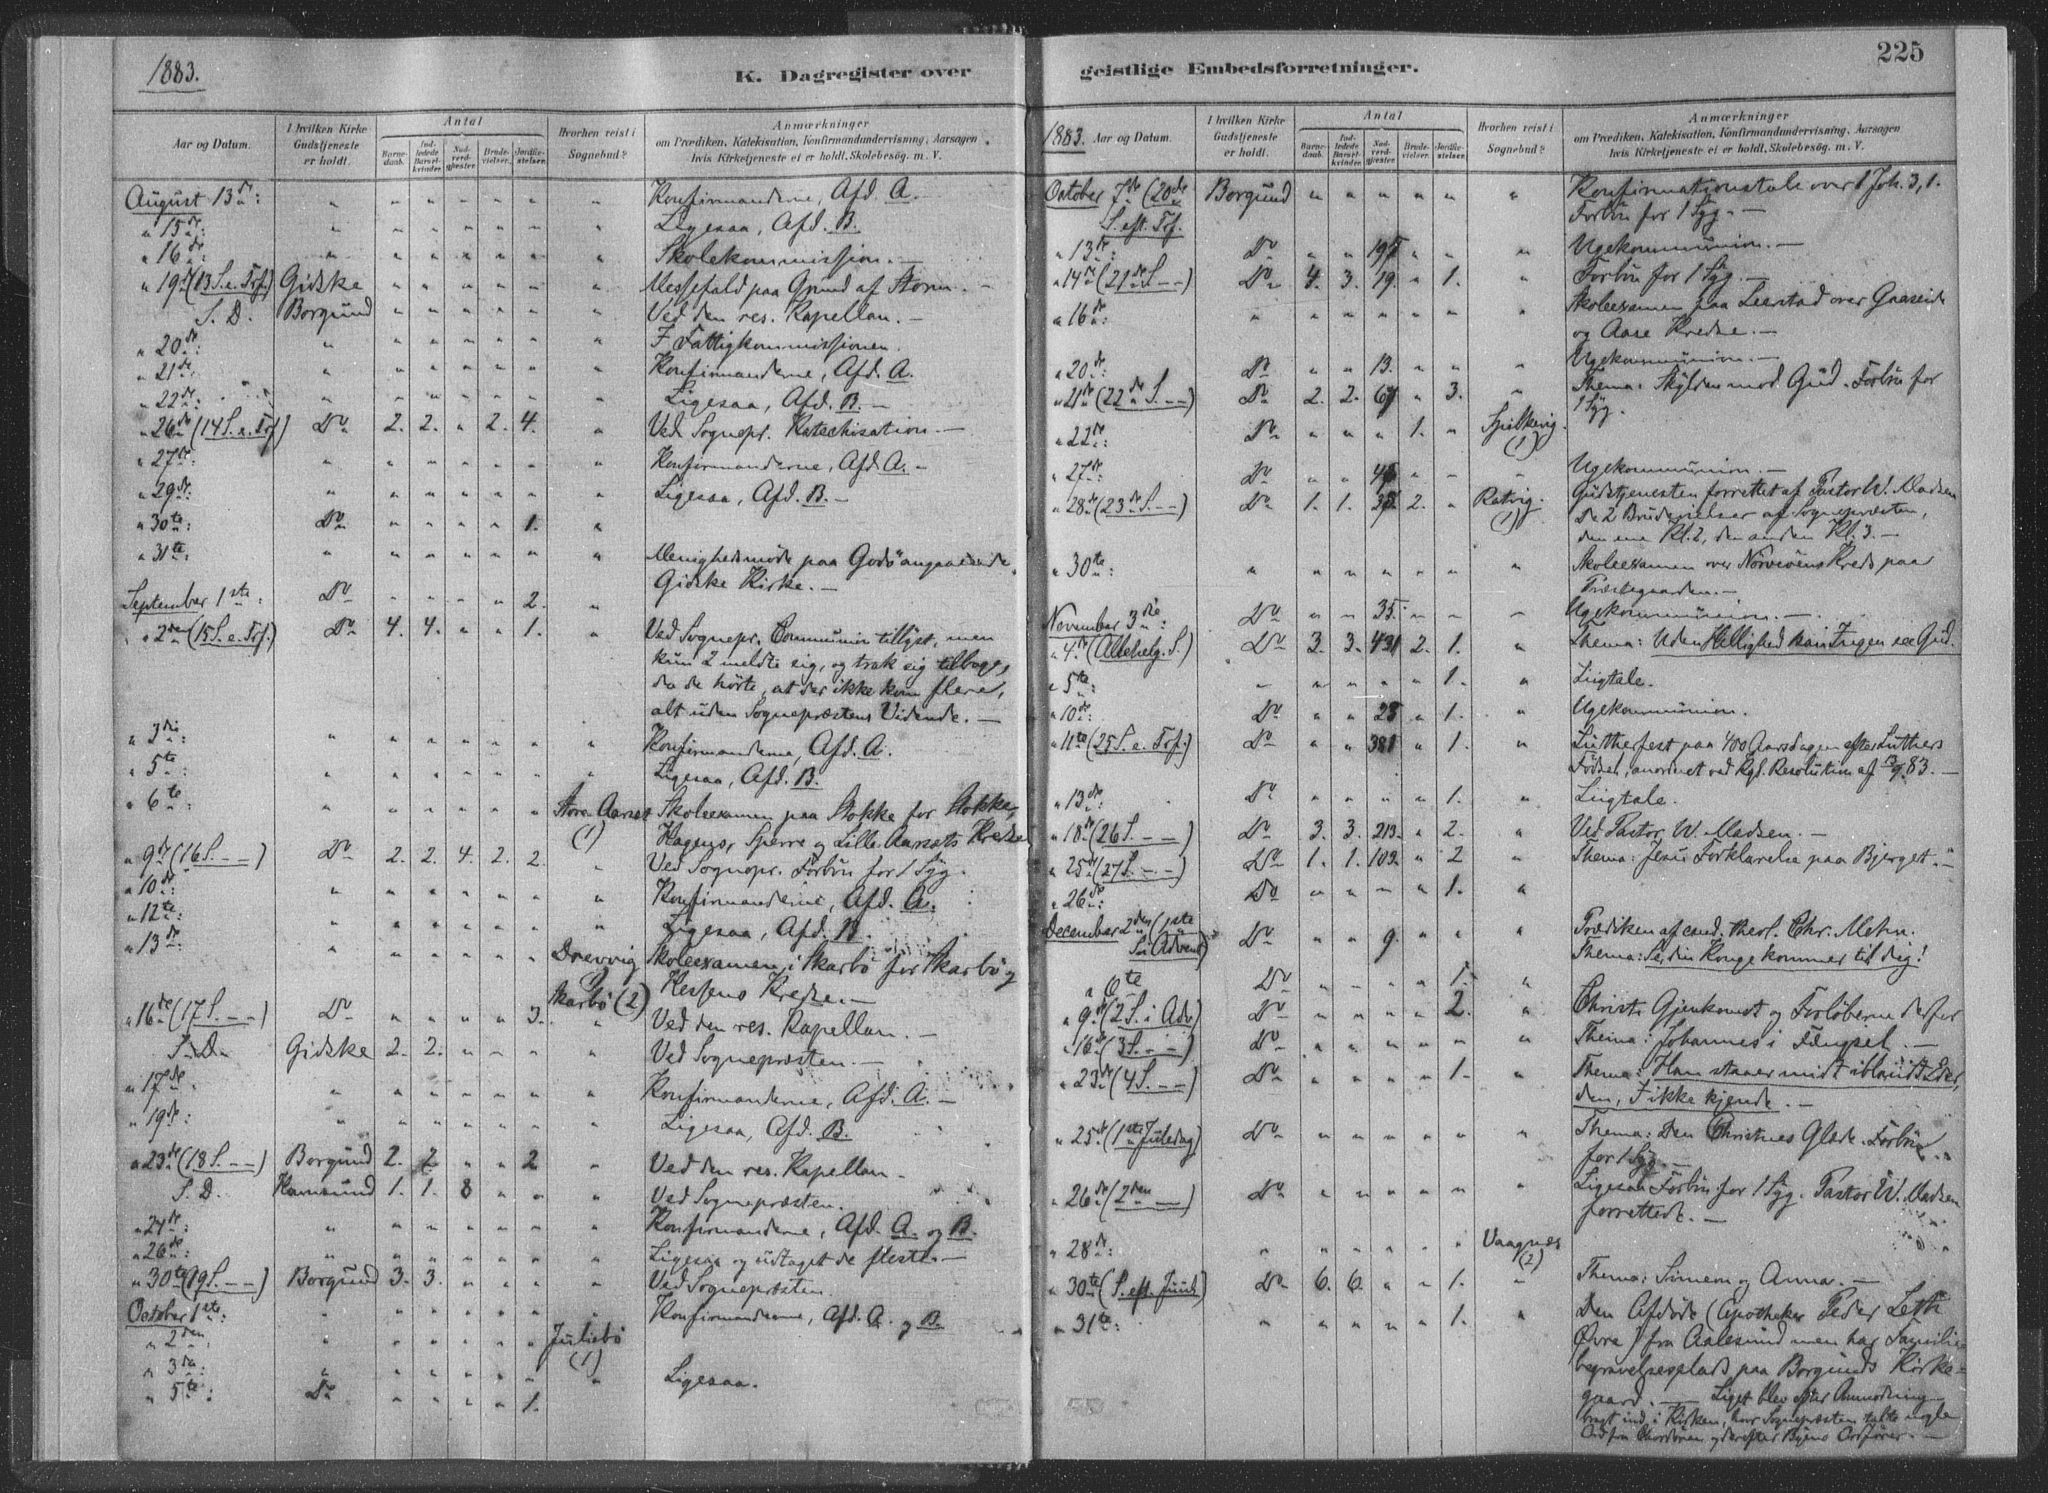 1883.
K. Dagregister over
Aar og Datum.
I hvilken Kirke Gudstjeneste er holdt.
Antal
Barnedaab. Indledede Barselkvinder. Nadverdgjester. Brudevielser. Jordfæstelser.
Hvorhen reist i Sognebud?
Anmærkninger
om Prædiken, Katekisation, Konfirmandundervisning, Aarsagen hvis Kirketjeneste ei er holdt, Skolebesög. m. V.
August 13de: " " " " " " " Konfirmanderne, Afd. A. —
" 15de: " " " " " " " Ligesaa, Afd. B.
" 16de " " " " " " " Skolekommission. —
" 19de (13 S. e. Trf.) Gidske " " " " " " Messefald paa Grund af Storm. —
S. D. Borgund " " " " " " Ved den res. Kapellan. —
" 20de: " " " " " " " I Fattigkommissionen.
" 21de " " " " " " " Konfirmanderne, Afd. A.
" 22de: " " " " " " " Ligesaa, Afd. B. —
" 26de (14 S. e. Trf) Do 2. 2. " 2. 4. " Ved Sognepr. Katechisation. —
" 27de: " " " " " " " Konfirmanderne, Afd. A. —
" 29de: " " " " " " " Ligesaa, Afd. B. —
" 30te: Do " " " " 1. "
" 31te: " " " " " " " Menighedsmöde paa Godö angaaende
Gidske Kirke. —
September 1ste: Do " " " " 2. "
" 2den (15 S. e. Trf.) Do 4. 4. " " 1. " Ved Sognepr. Communion tillyst, men
kun 2 meldte sig, og trak sig tilbage,
da de hörte, at der ikke kom flere,
alt uden Sogneprestens Vidende. —
" 3die: " " " " " " " Konfirmanderne, Afd. A.
" 5te: " " " " " " " Ligesaa, Afd. B.
" 6te " " " " " " Store Aarset (1) Skoleexamen paa Stokke for Stokke,
Hagens, Sperre og Lille Aarsets Kredse
" 9de (16 S. — —) Do 2. 2. 4. 2. 2. " Ved Sognepr. Forbön for 1 Syg.
" 10de: " " " " " " " Konfirmanderne, Afd. A.
" 12te: " " " " " " " Ligesaa, Afd. B.
" 13de: " " " " " " Drevvig Skoleexamen i Skarbö for Skarbö og
Skarbö (2) Hessens Kredse. —
" 16de (17 S. — —) Do " " " " 3. " Ved den res. Kapellan. —
S. D. Gidske 2. 2. " " " " Ved Sognepræsten. —
" 17de. " " " " " " " Konfirmanderne, Afd. A. —
" 19de: " " " " " " " Ligesaa, Afd. B.
" 23de (18 S. — —) Borgund 2. 2. " " 2 " Ved den res. Kapellan. —
S. D. 1. 1. 8 " " " Ved Sognepræsten.
" 24de: " " " " " " " Konfirmanderne, Afd. A. og B.
" 26de: " " " " " " " Ligesaa og udtaget de fleste. —
" 30te (19 S. — —) Borgund 3. 3. " " " " Ved Sognepræsten.
October 1ste: " " " " " " " Konfirmanderne, Afd. A. og B.
" 2den " " " " " " Juliebö (1)
" 3die: " " " " " " " Ligesaa.
" 5te: Do " " " " 1.
225
geistlige Embedsforretninger.
1883. Aar og Datum.
I hvilken Kirke Gudstjeneste er holdt.
Antal
Barnedaab. Indledede Barselkvinder. Nadverdgjester. Brudevielser. Jordfæstelser.
Hvorhen reist i Sognebud?
Anmærkninger
om Prædiken, Katekisation, Konfirmandundervisning, Aarsagen hvis Kirketjeneste ei er holdt, Skolebesög. m. V.
October 7de (20de S. eft. Trf. Borgund " " " " " " Konfirmationstale over 1 Joh. 3, 1.
Forbön for 1 Syg. —
" 13de: Do " " " " " Ugekommunion. —
" 14de (21de S — —) Do 4. 3. 19. " 1. " Forbön for 1 Syg. —
" 16de: " " " " " " " Skoleexamen paa Leerstad over Gaaseide
og Aase Kredse. —
" 20de: Do " " 13. " " " Ugekommunion. —
" 21de (22de S — —) Do 2. 2. " 3. " Thema: Skylden mod Gud. Forbön for
1 Syg.
" 22de: Do " " " 1. " Spilkevig. (1)
" 27de: Do " " " " " Ugekommunion. —
" 28de (23de S. — —) Do 1. 1. 2. " Ratvig. (1) Gudstjenesten forrettet af Pastor W. Madsen
De 2 Brudevielser af Sognepræsten,
den ene Kl. 2, den anden Kl. 3. —
" 30te: " " " " " " " Skoleexamen over Nörvöens Kreds paa
Præstegaarden. —
November 3die: Do " " 35. " " " Ugekommunion. —
" 4de (Allehelg. S.) Do 3. 3. 431 2. 1. " Thema: Uden Hellighed kan Ingen see Gud.
" 5te: " " " " " 1. " Liigtale.
" 10de: Do " " 28 " 1. " Ugekommunion.
" 11te (25 S. e. Trf.) Do " " 381 " 1. " Lutherfest paa 400 Aarsdagen efter Luthers
Födsel, anordnet ved Kgl. Resolution af 83. —
" 13de: Do " " " " 1. " Liigtale.
" 18de (26 S. — —) Do 3. 3. 213. " 2. " Ved Pastor W. Madsen. —
" 25de (27 S. — —) Do 1. 1. 102. " 2 " Thema: Jesu Forklarelse paa Bjerget. —
" 26de Do " " " " 1. "
December 2den (1ste S. i Advent) Do " " 9. " " " Prædiken af cand. theol. Chr. Mehn.
Thema: Se, din Konge kommer til dig!
" 6te Do " " " " 1. "
" 9de (2 S. i Adv. Do " " " " 2. " Christi Gjenkomst og Forlöberne derfor
" 16de (3 S. — —) Do " " " " " " Thema: Johannes i Fængsel. —
" 23de (4 S. — —) Do " " " " 1. " Thema: Han staaer midt iblandt Eder,
den, I ikke kjende. —
" 25de (1ste Juledag) Do " " " " " " Thema: Den Christnes Glæde. Forbön
for 1 Syg. —
" 26de (2den — —) Do " " " " " " Ligesaa Forbön for 1 Syg. Pastor W. Madsen
forrettede. —
" 28de: " " " " " " Vaagnæs (2)
" 30te (S. eft. Juul) Do 6. 6. " " 1. " Thema: Simeon og Anna. —
" 31te: " " " " " 1. " Den Afdöde (Apotheker Peder Leth
Övre) fra Aalesund men har Familie
begravelsesplads paa Borgunds Kirke-
gaard. — Liget blev efter Anmodning
bragt ind i Kirken, hvor Sognepræsten talte nogle
Ord fra Chordören og derefter Byens Ordförer. —